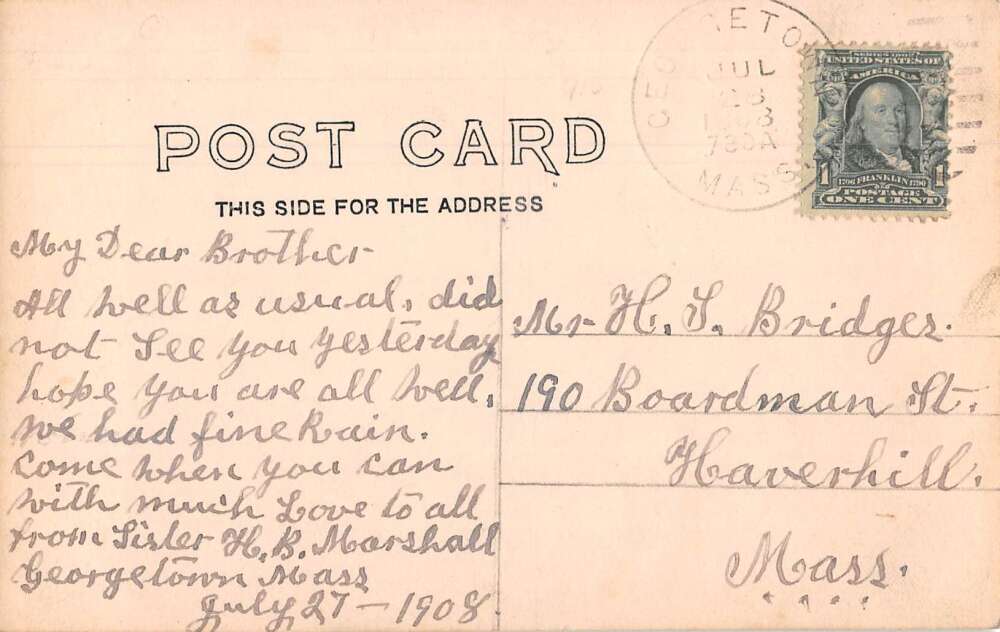 GEORGETOWN
JUL
28
1908
730A
MASS.
SERIES 1902
UNITED STATES OF
AMERICA
1706 FRANKLIN 1790
1 1
POSTAGE
ONE CENT
POST CARD
THIS SIDE FOR THE ADDRESS
My Dear Brother
All well as usual, did
not See you yesterday
hope you are all well,
we had fine Rain.
Come when you can
with much Love to all
from Sister H. B. Marshall
Georgetown Mass
July 27 - 1908
Mr. H. S. Bridges.
190 Boardman St.
Haverhill.
Mass.